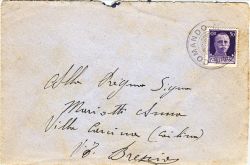 OMANDO
Alla Pregma Signa
Mariotti Anna
Villa Carcina
Brescia